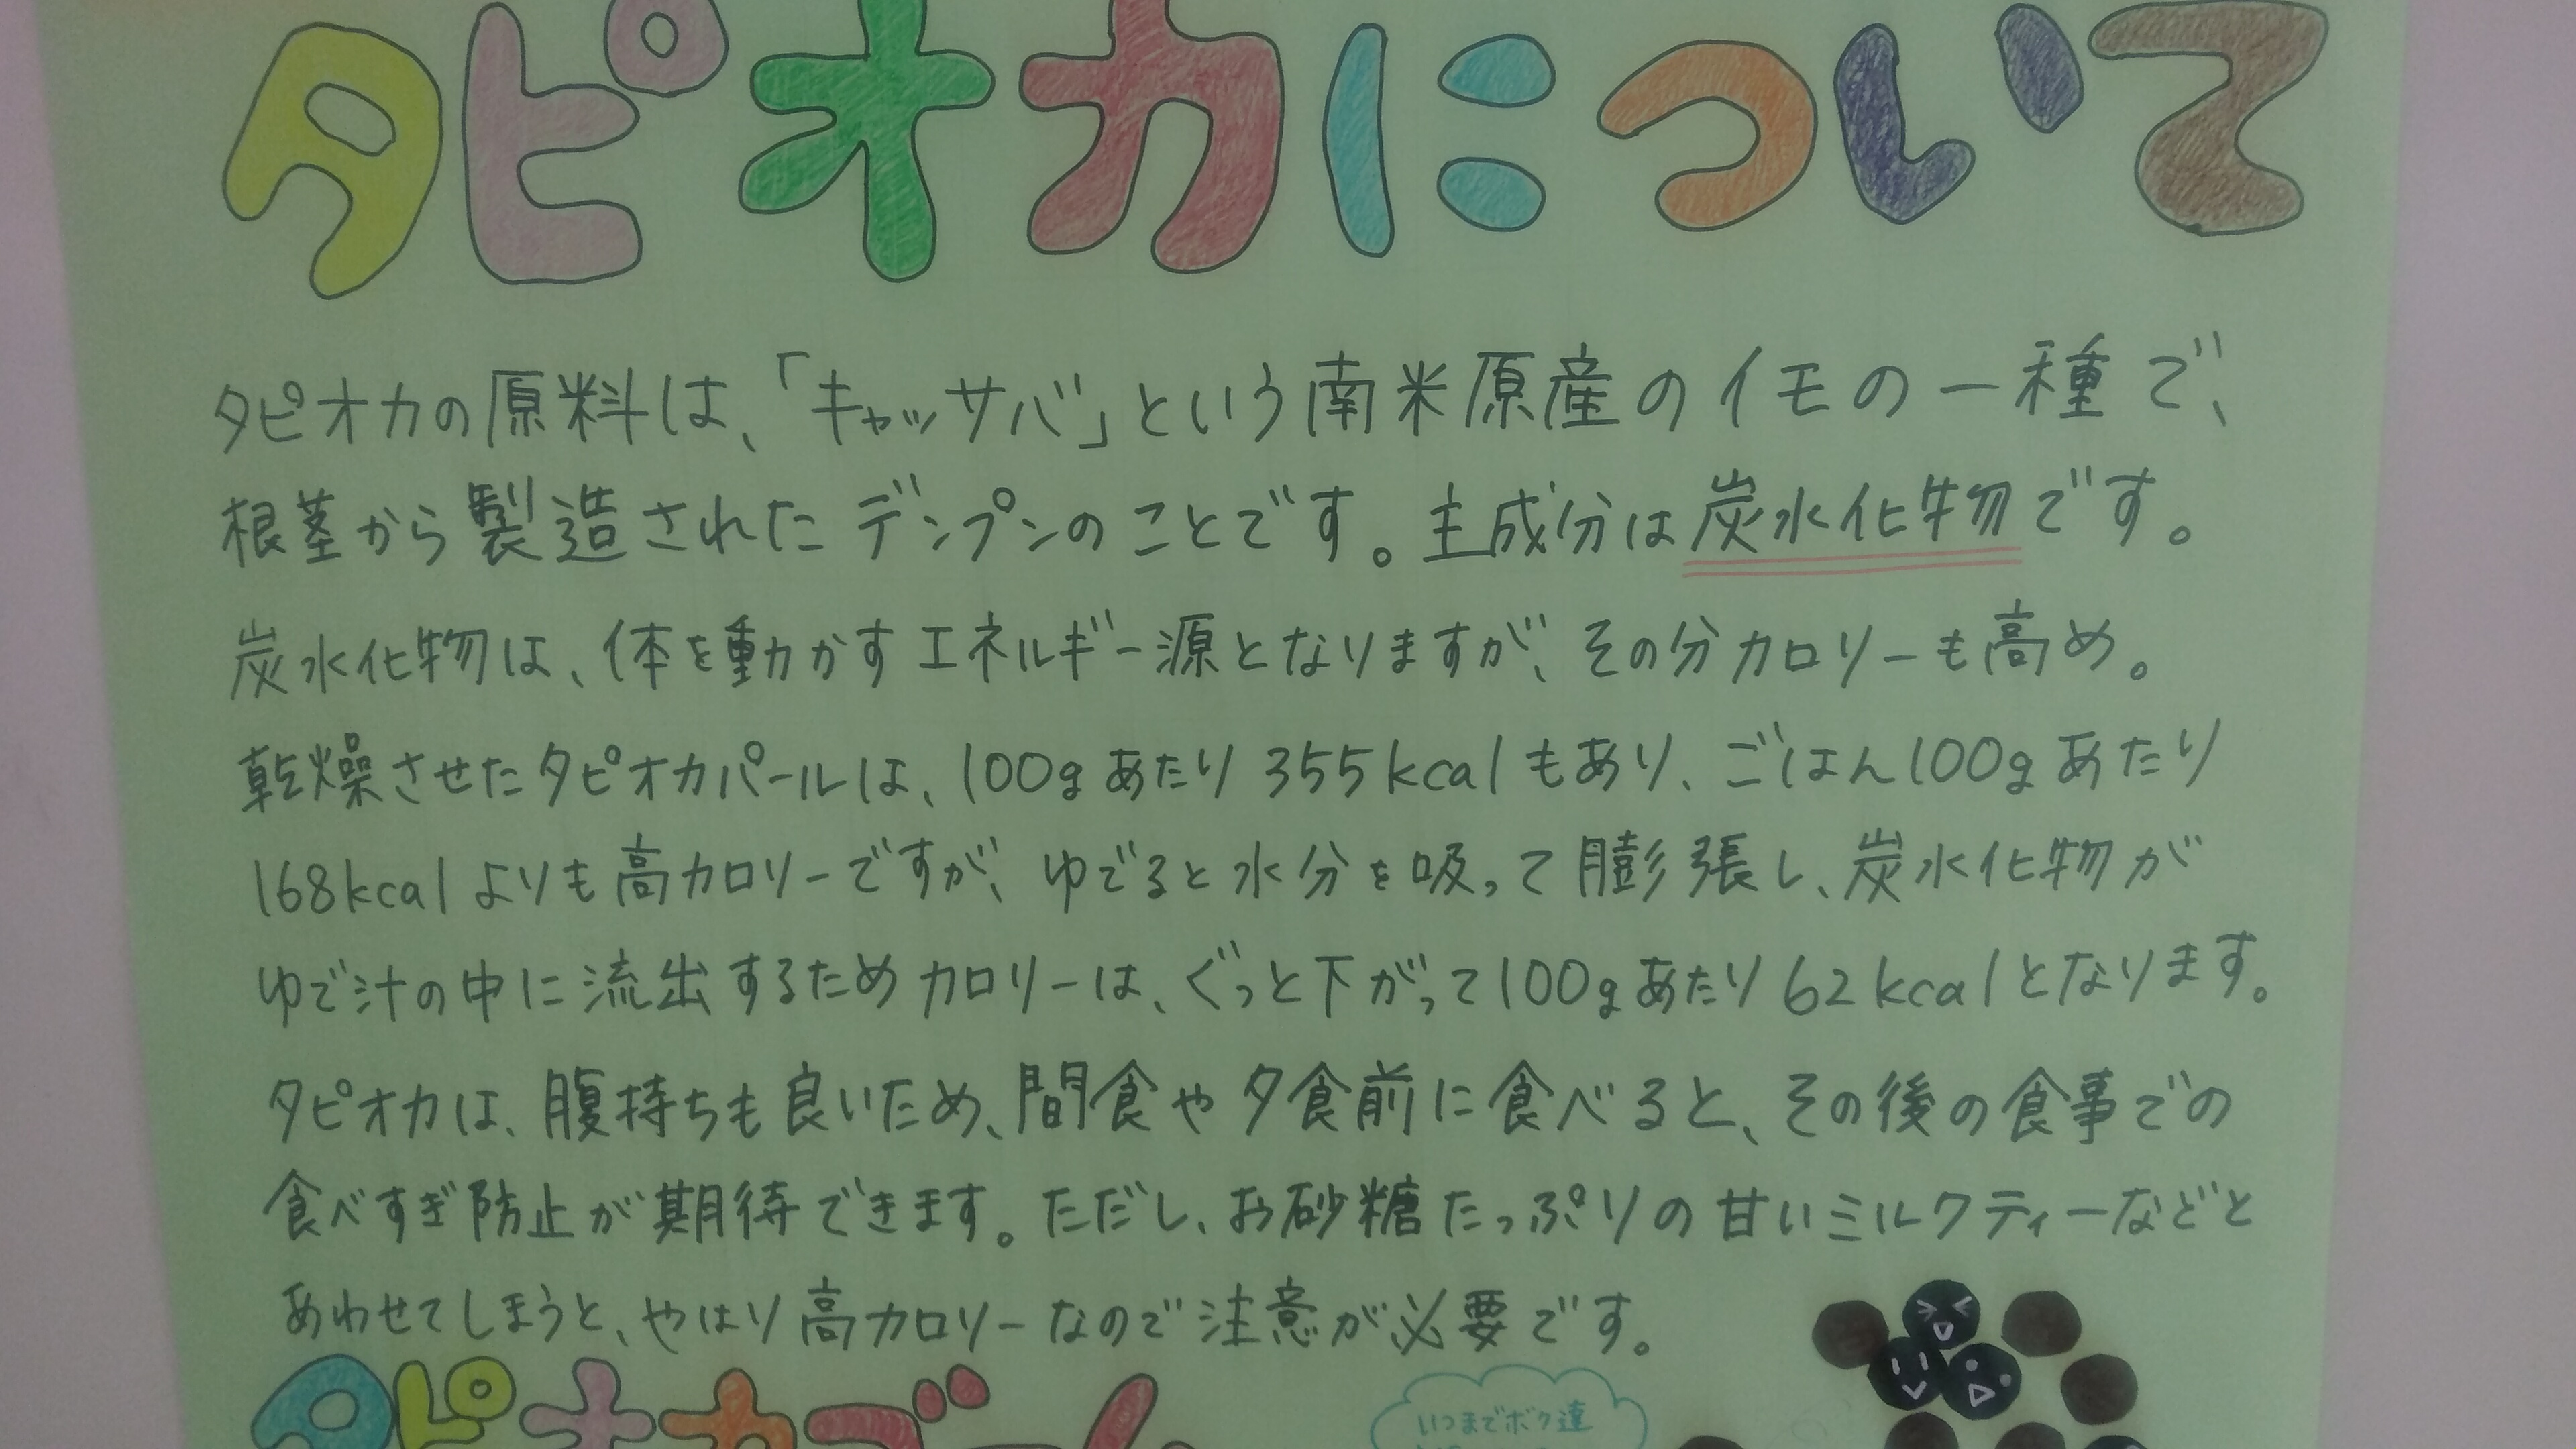 タピオカについて
タピオカの原料は、「キャッサバ」という南米原産のイモの一種で、
根茎から製造されたデンプンのことです。主成分は炭水化物です。
炭水化物は、体を動かすエネルギー源となりますが、その分カロリーも高め。
乾燥させたタピオカパールは、100gあたり355kcalもあり、ごはん100gあたり
168kcalよりも高カロリーですが、ゆでると水分を吸って膨張し、炭水化物が
ゆで汁の中に流出するためカロリーは、ぐっと下がって100gあたり62kcalとなります。
タピオカは、腹持ちも良いため、間食や夕食前に食べると、その後の食事での
食べすぎ防止が期待できます。ただし、お砂糖たっぷりの甘いミルクティーなどと
あわせてしまうと、やはり高カロリーなので注意が必要です。
タピオカブーム
いつまでボク達